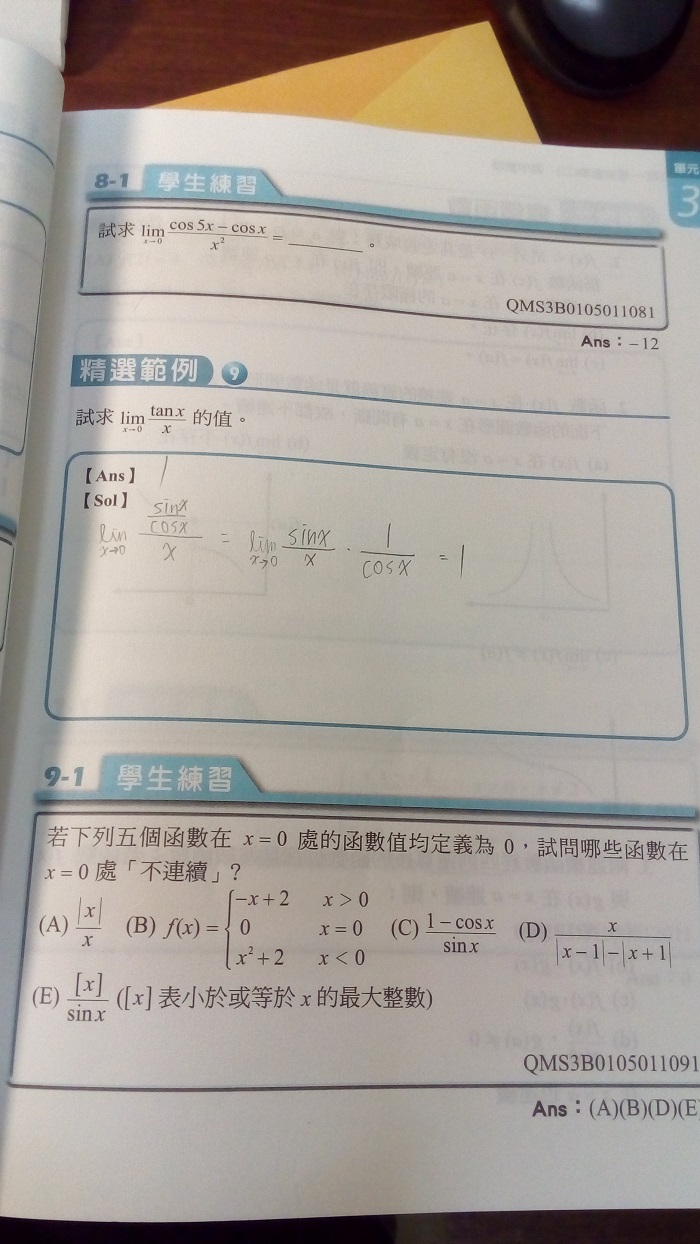 單元
3
8-1 學生練習
試求 lim x→0 (cos 5x − cos x)/x² = ______ 。
QMS3B0105011081
Ans：−12
精選範例 9
試求 lim x→0 tan x/x 的值。
【Ans】 1
【Sol】
lim x→0 (sinx/cosx)/x = lim x→0 sinx/x · 1/cosx = 1
9-1 學生練習
若下列五個函數在 x = 0 處的函數值均定義為 0，試問哪些函數在
x = 0 處「不連續」？
(A) |x|/x (B) f(x) = { −x + 2 x > 0
0 x = 0
x² + 2 x < 0
(C) (1 − cos x)/sin x (D) x/(|x − 1| − |x + 1|)
(E) [x]/sin x ([x] 表小於或等於 x 的最大整數)
QMS3B0105011091
Ans：(A)(B)(D)(E